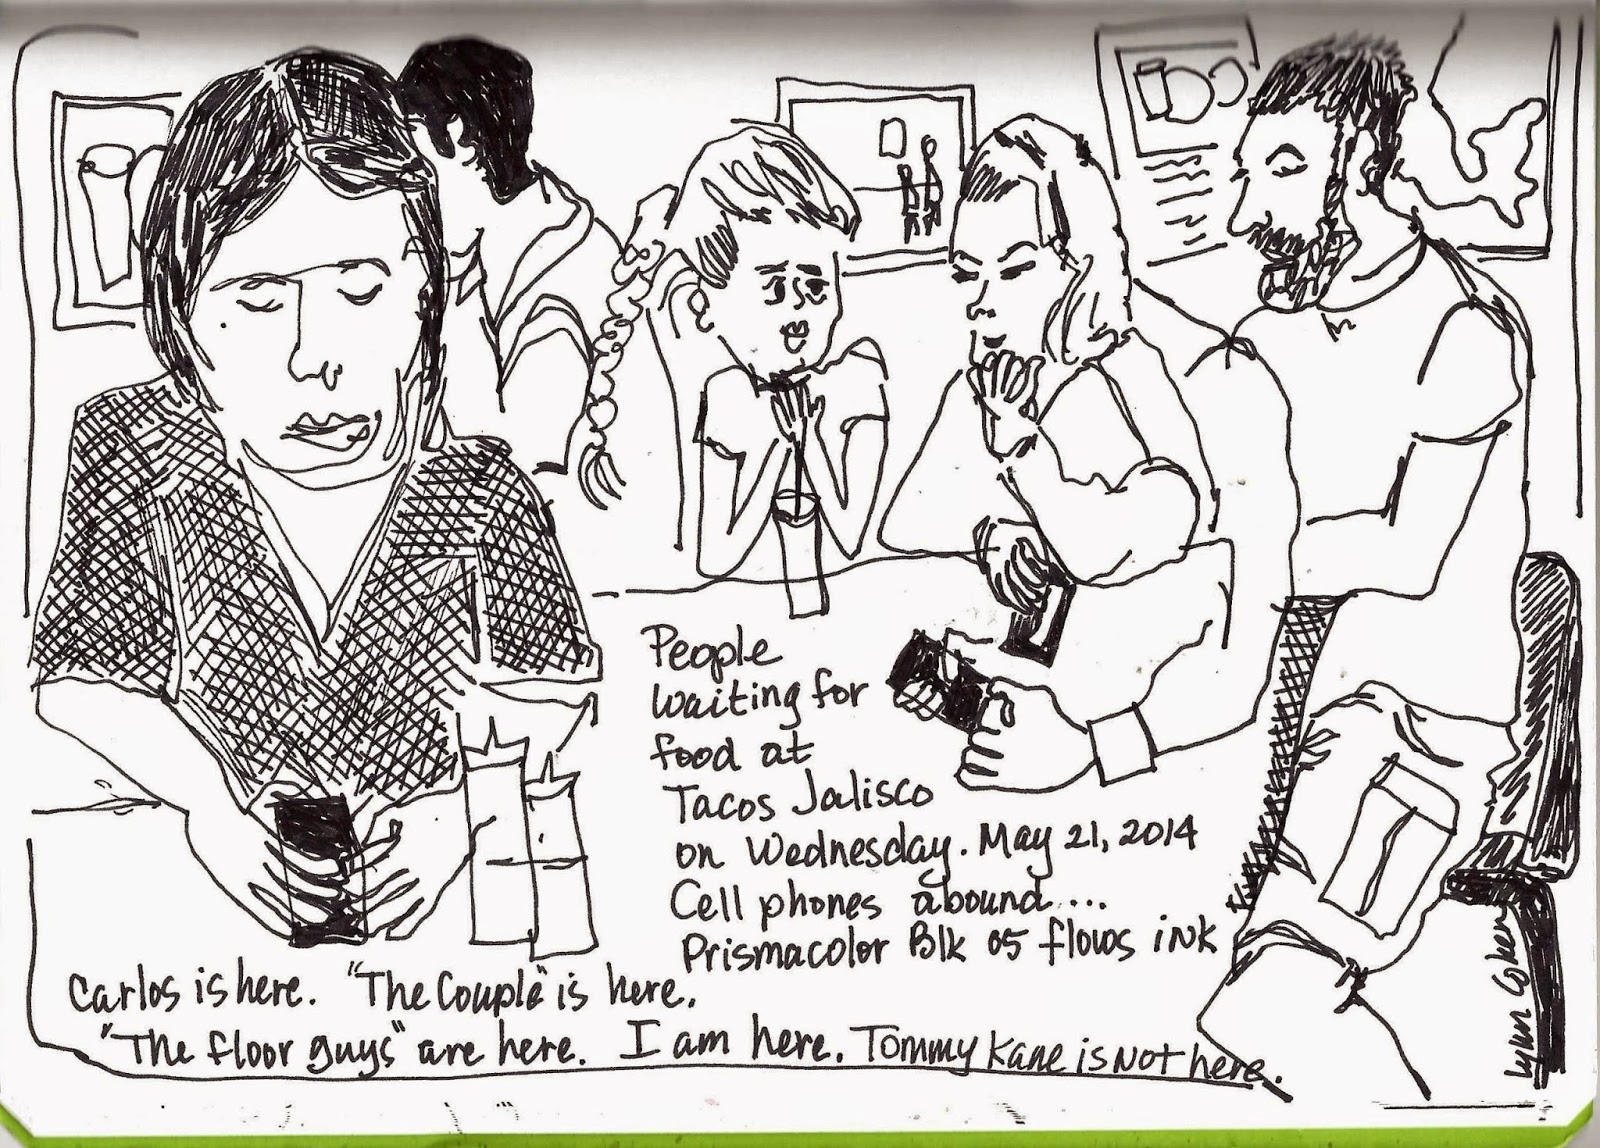 People
waiting for
food at
Tacos Jalisco
on Wednesday. May 21, 2014
Cell phones abound....
Prismacolor Blk 05 flows ink
Carlos is here. "The Couple" is here.
"The floor guys" are here. I am here. Tommy Kane is not here.
Lynn Cohen